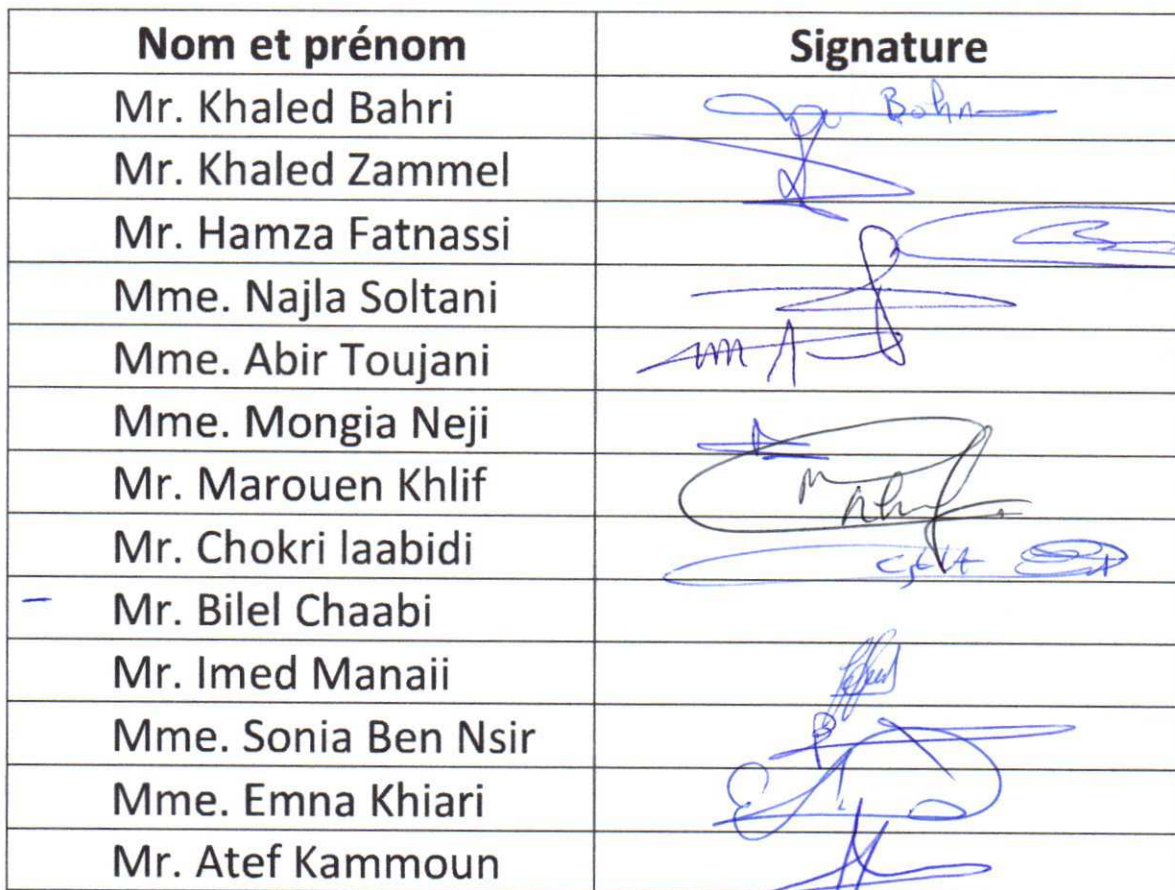 Nom et prénom Signature
Mr. Khaled Bahri
Mr. Khaled Zammel
Mr. Hamza Fatnassi
Mme. Najla Soltani
Mme. Abir Toujani
Mme. Mongia Neji
Mr. Marouen Khlif
Mr. Chokri laabidi
Mr. Bilel Chaabi
Mr. Imed Manaii
Mme. Sonia Ben Nsir
Mme. Emna Khiari
Mr. Atef Kammoun